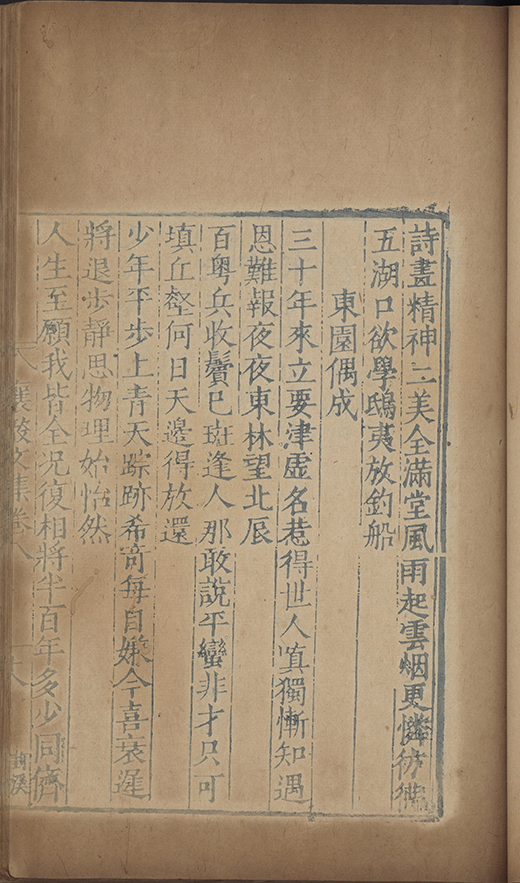 詩畫精神二美全滿堂風雨起雲烟更憐彷彿
五湖口欲學鴟夷放釣船
東園偶成
三十年來立要津虛名惹得世人嗔獨慚知遇
恩難報夜夜東林望北辰
百粵兵收鬢已斑逢人那敢說平蠻非才只可
填丘壑何日天邊得放還
少年平步上青天踪跡希奇每自嫌今喜衰遲
將退步靜思物理始怡然
人生至願我皆全况復相將半百年多少同儕
襄毅文集卷八